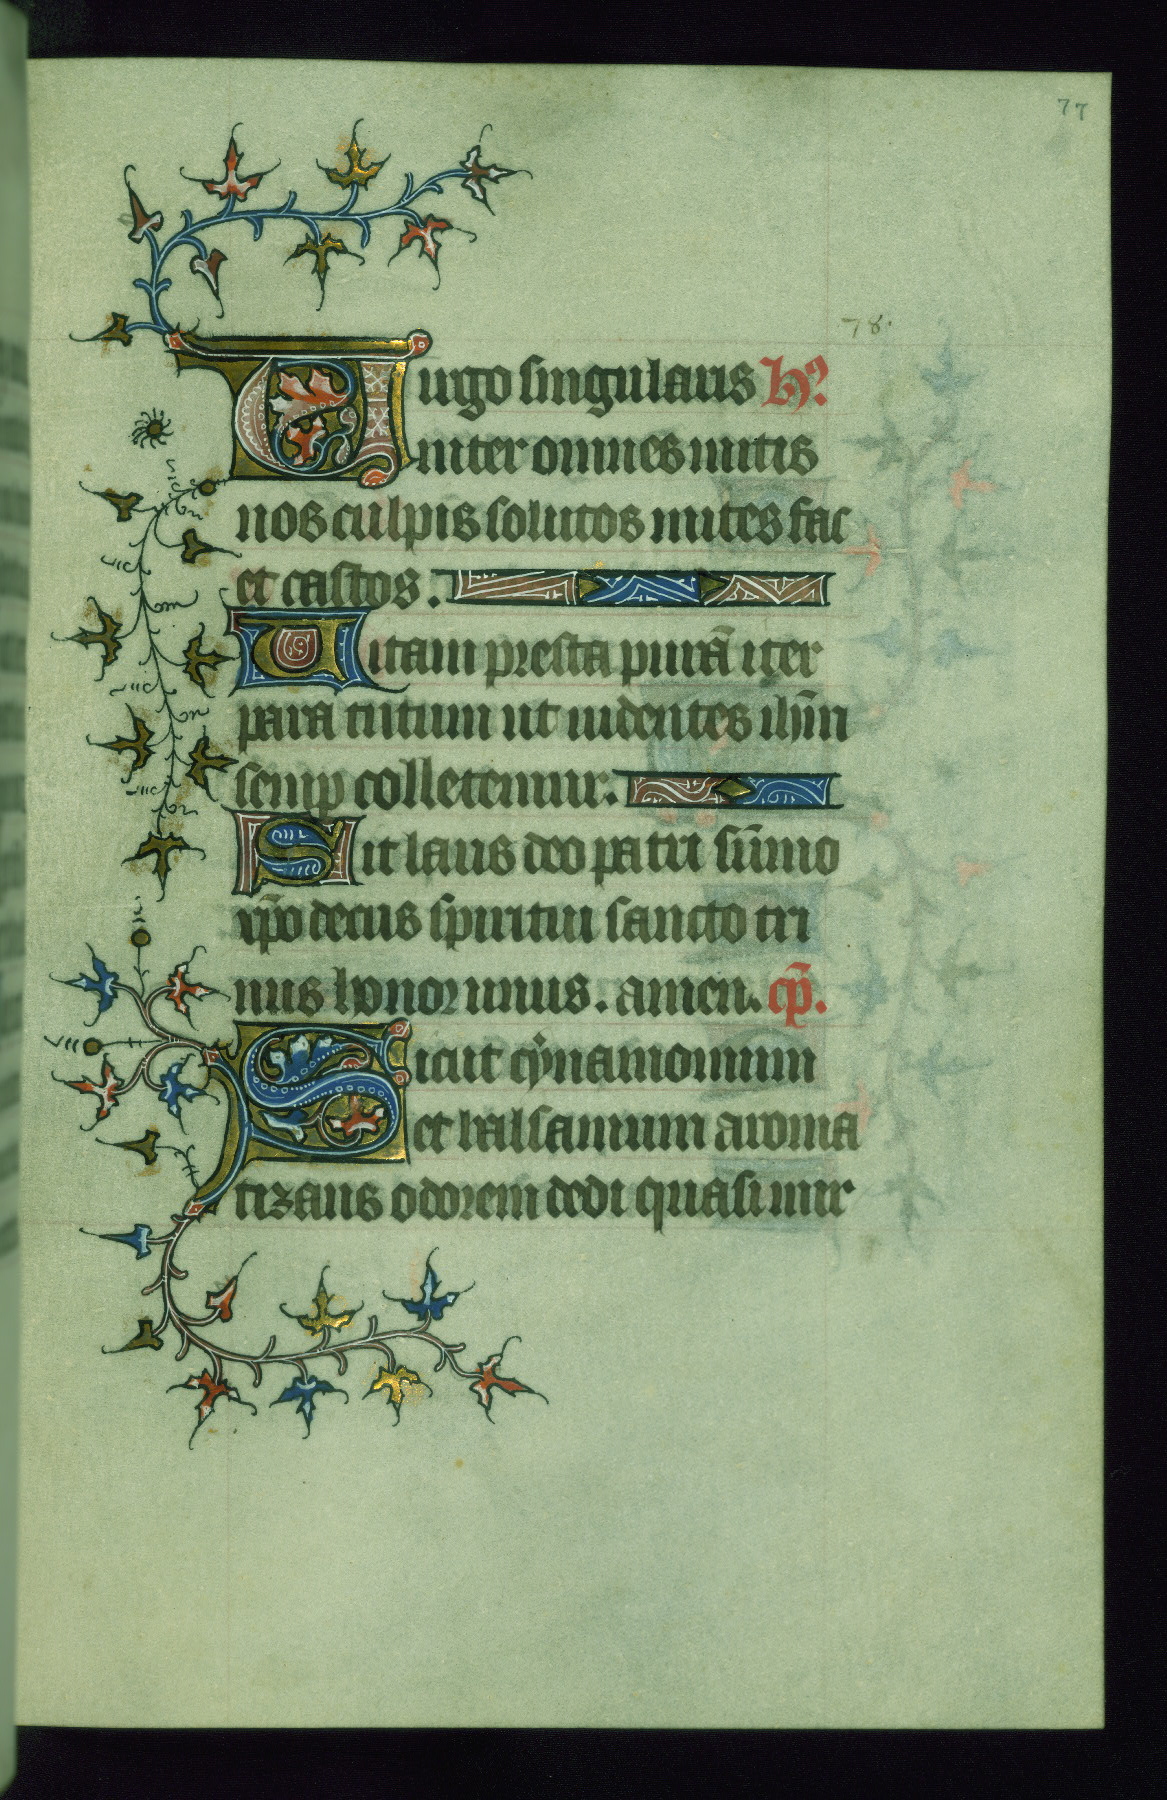 77
78.
Uirgo singularis hº.
inter omnes mitis
nos culpis solutos mites fac
et castos.
Uitam presta purā iter
para tutum ut uidentes ihm̄
semp colletemur.
Sit laus deo patri sūmo
xp̄o decus spiritui sancto tri
nus honor unus. amen. cp̄.
Sicut cẏnamomum
et balsamum aroma
tizans odorem dedi quasi mir